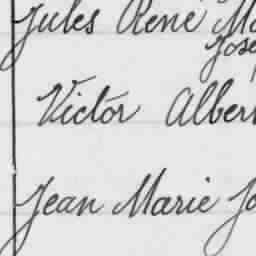 Jules René Mo
Jose
Victor Alber
Jean Marie Jo